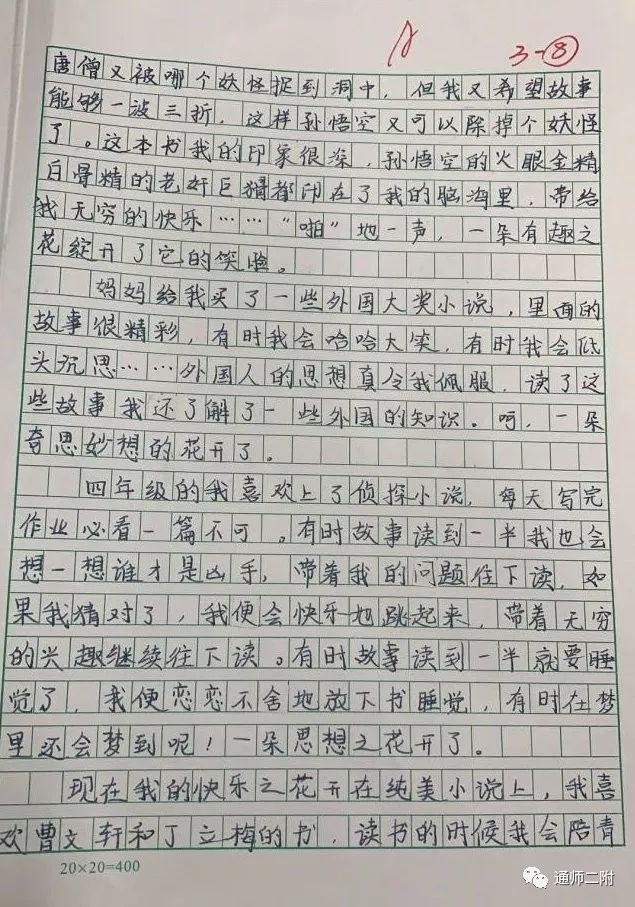 A
3-⑧
唐僧又被哪个妖怪捉到洞中，但我又希望故事
能够一波三折，这样孙悟空又可以除掉个妖怪
了。这本书我的印象很深，孙悟空的火眼金精
白骨精的老奸巨猾都印在了我的脑海里，带给
我无穷的快乐……“啪”地一声，一朵有趣之
花绽开了它的笑脸。
妈妈给我买了一些外国大奖小说，里面的
故事很精彩，有时我会哈哈大笑，有时我会低
头沉思……外国人的思想真令我佩服，读了这
些故事我还了解了一些外国的知识。呵，一朵
奇思妙想的花开了。
四年级的我喜欢上了侦探小说，每天写完
作业必看一篇不可。有时故事读到一半我也会
想一想谁才是凶手，带着我的问题往下读，如
果我猜对了，我便会快乐地跳起来，带着无穷
的兴趣继续往下读。有时故事读到一半就要睡
觉了，我便恋恋不舍地放下书睡觉，有时在梦
里还会梦到呢！一朵思想之花开了。
现在我的快乐之花开在纯美小说上，我喜
欢曹文轩和丁立梅的书，读书的时候我会陪青
20×20=400
通师二附